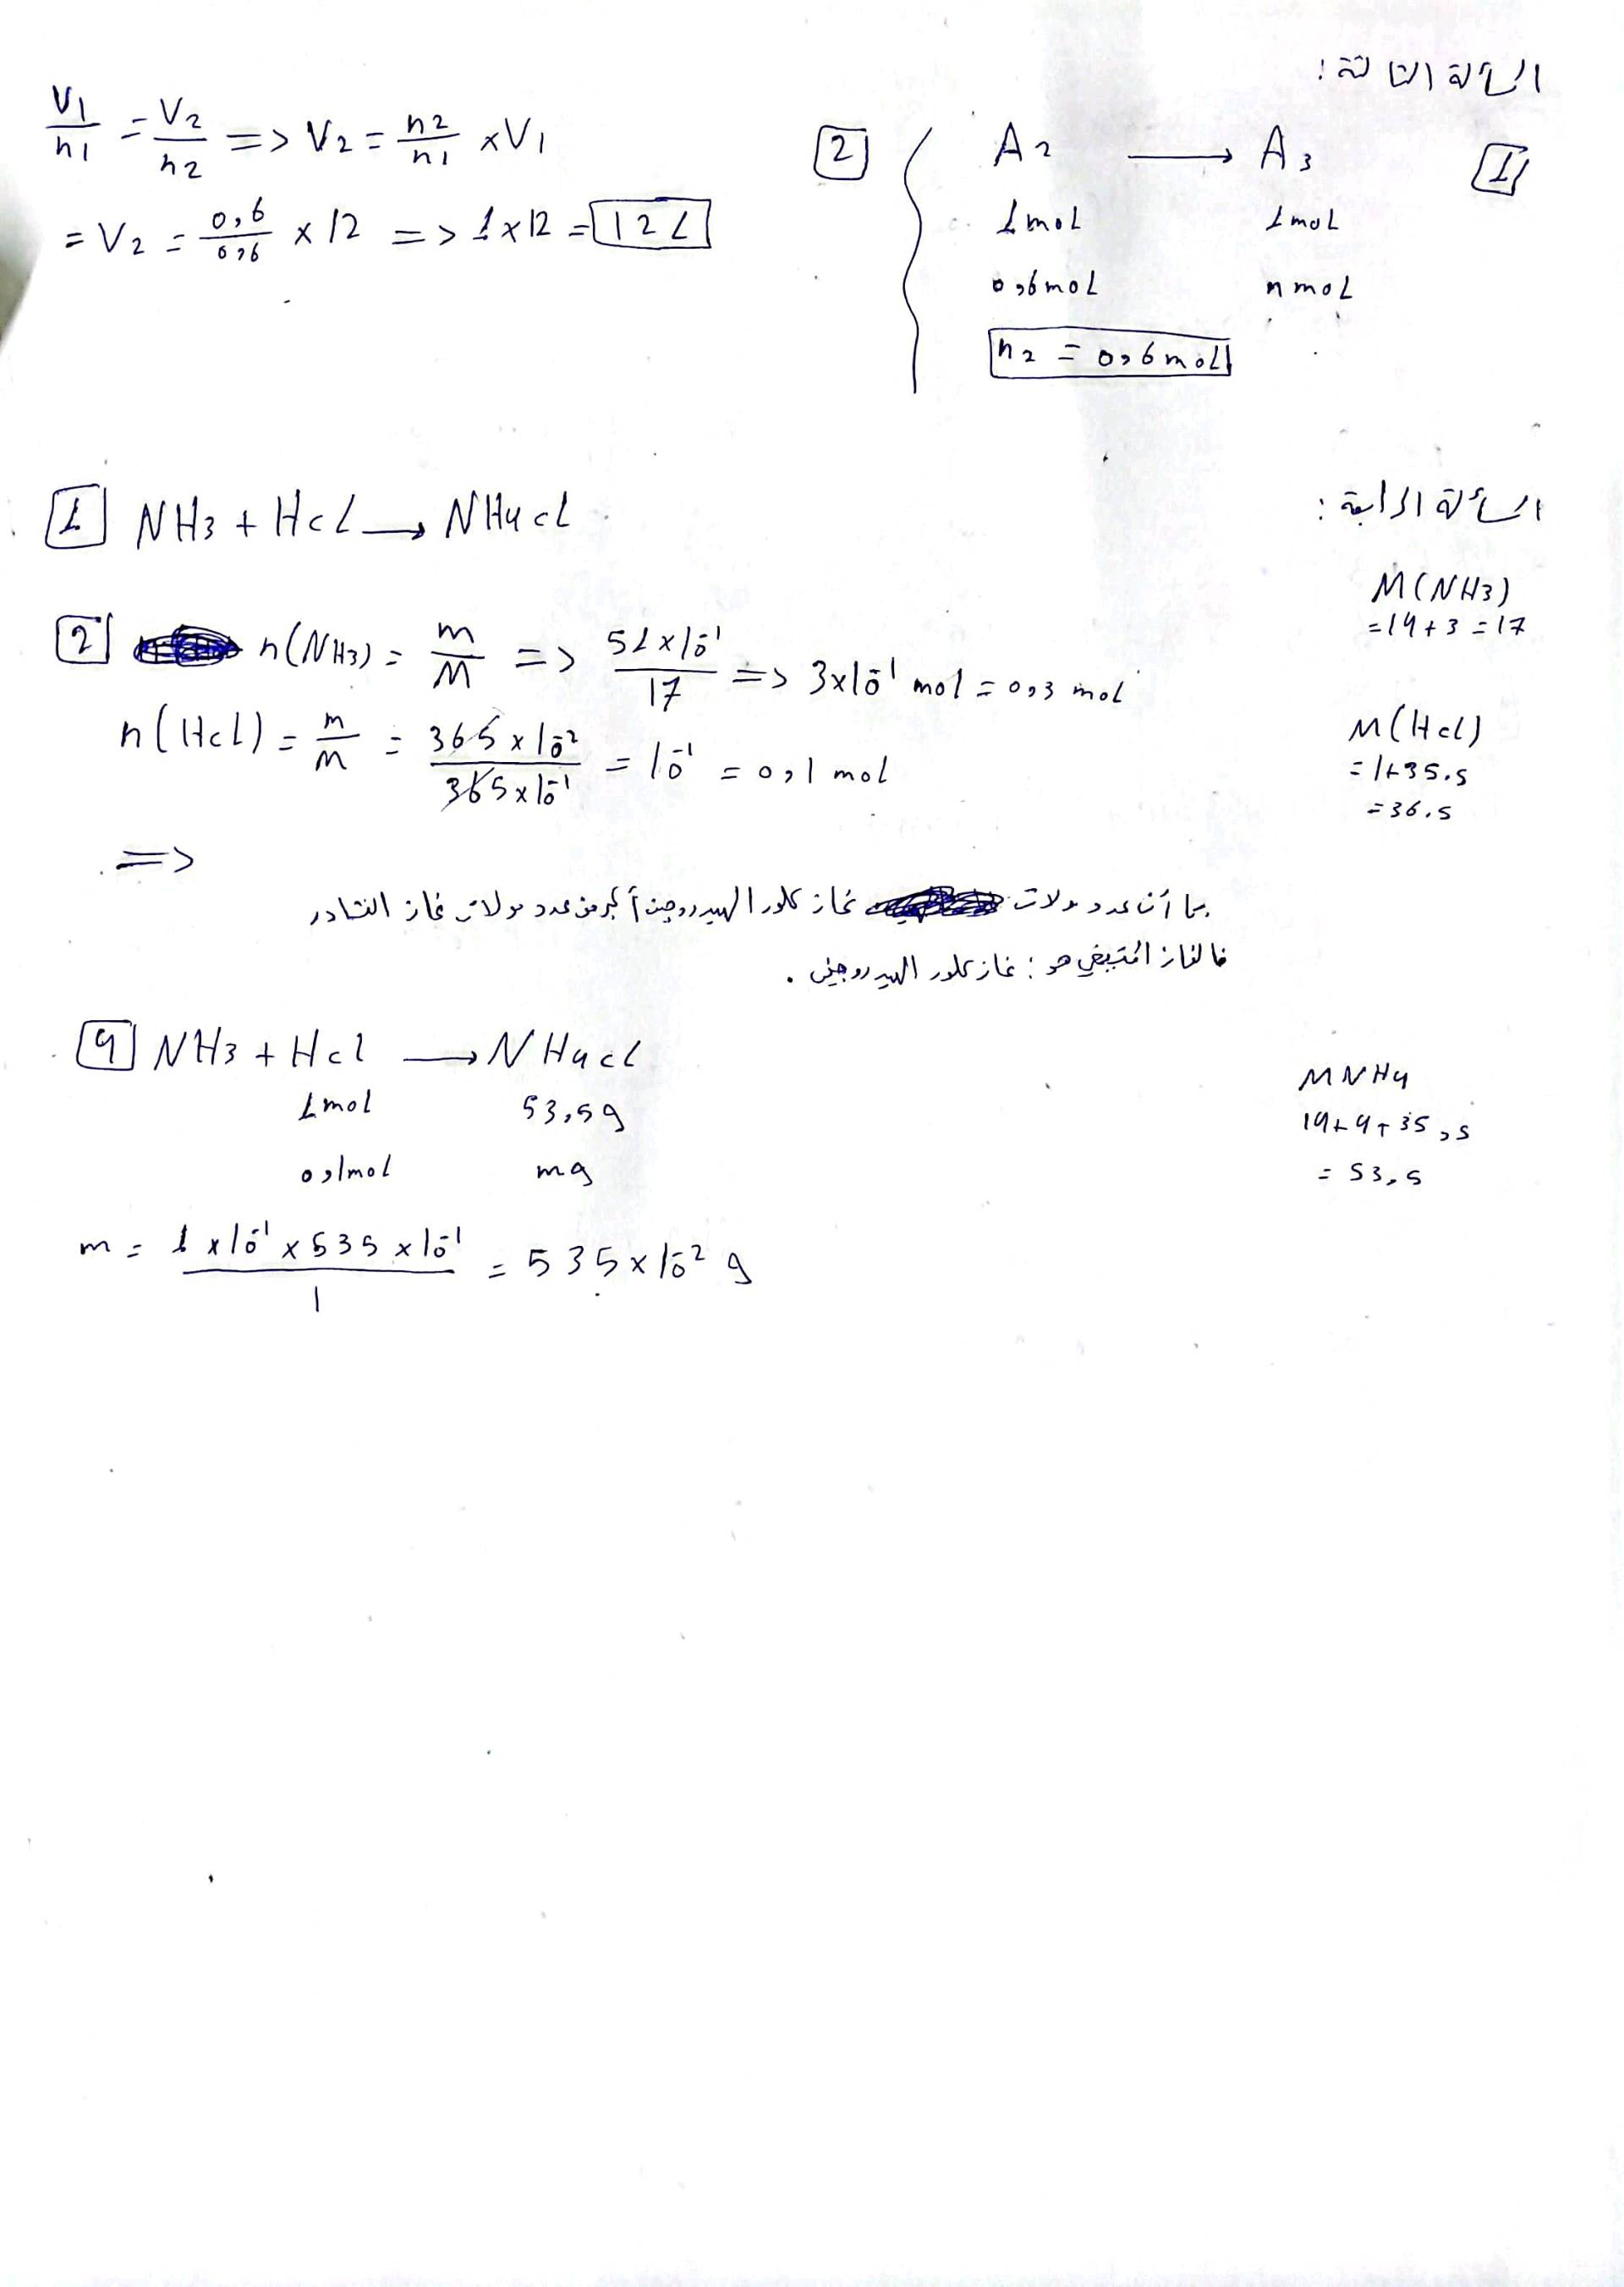 المسألة الثالثة:
[1] A2 ⟶ A3
1mol 1mol
0,6mol n mol
n2 = 0,6 mol
[2] V1/n1 = V2/n2 => V2 = n2/n1 × V1
= V2 = 0,6/0,6 × 12 => 1×12 = 12 L
المسألة الرابعة:
[1] NH3 + Hcl ⟶ NH4cl
M(NH3)
= 14 + 3 = 17
[2] n(NH3) = m/M => 51×10^-1/17 => 3×10^-1 mol = 0,3 mol
n(Hcl) = m/M = 365×10^-2/365×10^-1 = 10^-1 = 0,1 mol
M(Hcl)
= 1+35.5
= 36.5
=>
بما أن عدد مولات غاز كلور الهيدروجين أكبر من عدد مولات غاز النشادر
فالغاز المتبقي هو: غاز كلور الهيدروجين.
[4] NH3 + Hcl ⟶ NH4cl
1mol 53,5g
0,1mol mg
MNH4
14+4+35,5
= 53,5
m = 1×10^-1×535×10^-1/1 = 535×10^-2 g